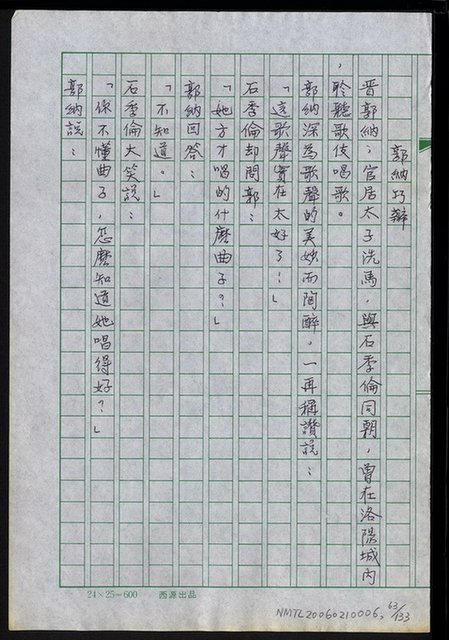 郭納巧辯
晉郭納，官居太子洗馬，與石季倫同朝，曾在洛陽城內
，聆聽歌伎唱歌。
郭納深為歌聲的美妙而陶醉。一再稱讚說：
「這歌聲實在太好了！」
石季倫却問郭：
「她方才唱的什麼曲子？」
郭納回答：
「不知道。」
石季倫大笑說：
「你不懂曲子，怎麼知道她唱得好？」
郭納說：
24×25=600 西源出品
NMTL20060210006, 63/133